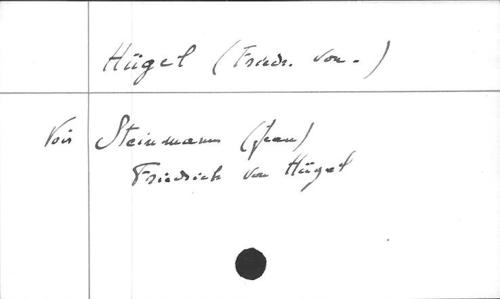 Hügel (Friedr. von.)
Voir Steinmann (Jean)
Friedrich von Hügel